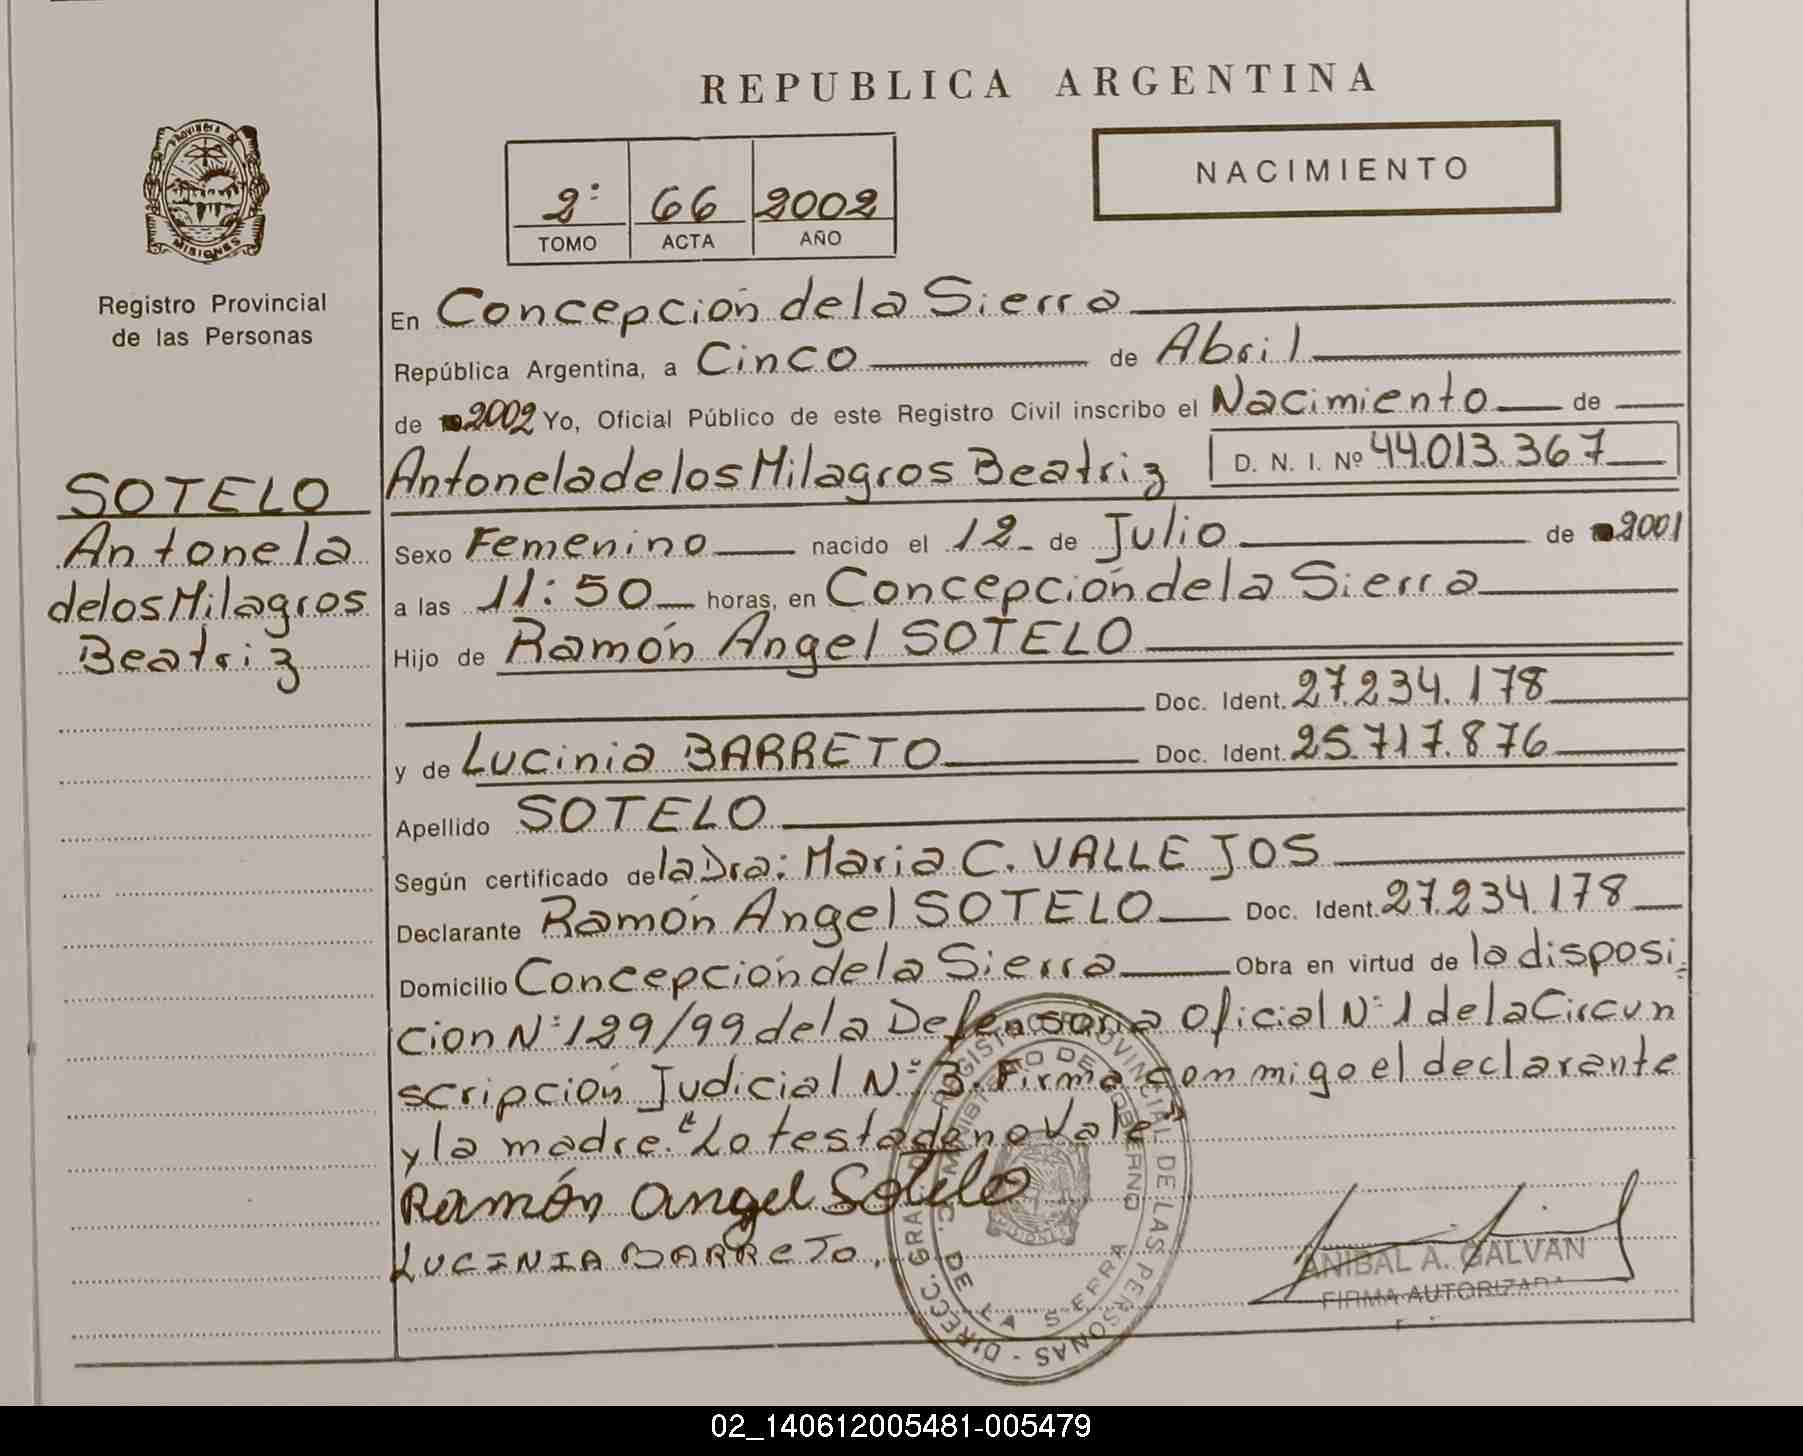 REPUBLICA ARGENTINA
NACIMIENTO
2º 66 2002
TOMO ACTA AÑO
PROVINCIA DE MISIONES
Registro Provincial
de las Personas
SOTELO
Antonela
de los Milagros
Beatriz
En Concepción de la Sierra
República Argentina, a Cinco de Abril
de 2002 Yo, Oficial Público de este Registro Civil inscribo el Nacimiento de
Antonela de los Milagros Beatriz D. N. I. Nº 44.013.367
Sexo Femenino nacido el 12 de Julio de 2001
a las 11:50 horas, en Concepción de la Sierra
Hijo de Ramón Angel SOTELO
Doc. Ident. 27.234.178
y de Lucinia BARRETO Doc. Ident. 25.717.876
Apellido SOTELO
Según certificado de la Dra: Maria C. VALLEJOS
Declarante Ramón Angel SOTELO Doc. Ident. 27.234.178
Domicilio Concepción de la Sierra Obra en virtud de la disposi
cion Nº 129/99 de la Defensoria Oficial Nº 1 de la Circun
scripción Judicial Nº 3. Firma con migo el declarante
y la madre. "Lo testado no Vale"
Ramón Angel Sotelo
LUCINIA BARRETO
DIRECC. GRAL. REGISTRO PROVINCIAL DE LAS PERSONAS
ANIBAL A. GALVAN
FIRMA AUTORIZADA
02_140612005481-005479